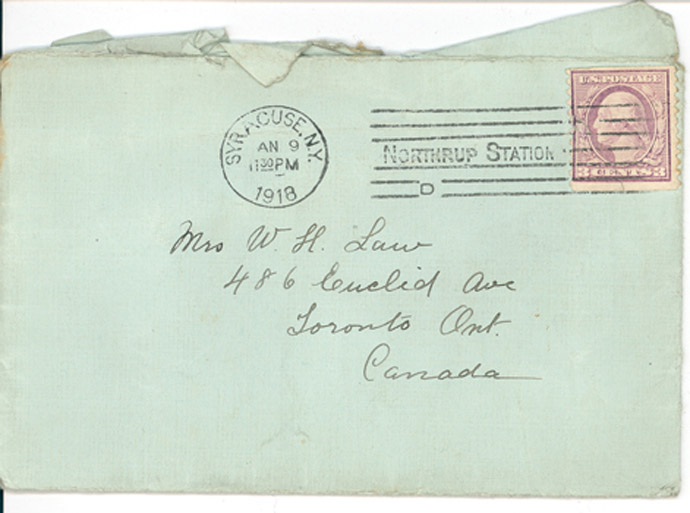 SYRACUSE, N.Y.
AN 9
11 30 PM
1918
NORTHRUP STATION
D
U.S. POSTAGE
3 CENTS 3
Mrs W. H. Law
486 Euclid Ave
Toronto Ont.
Canada